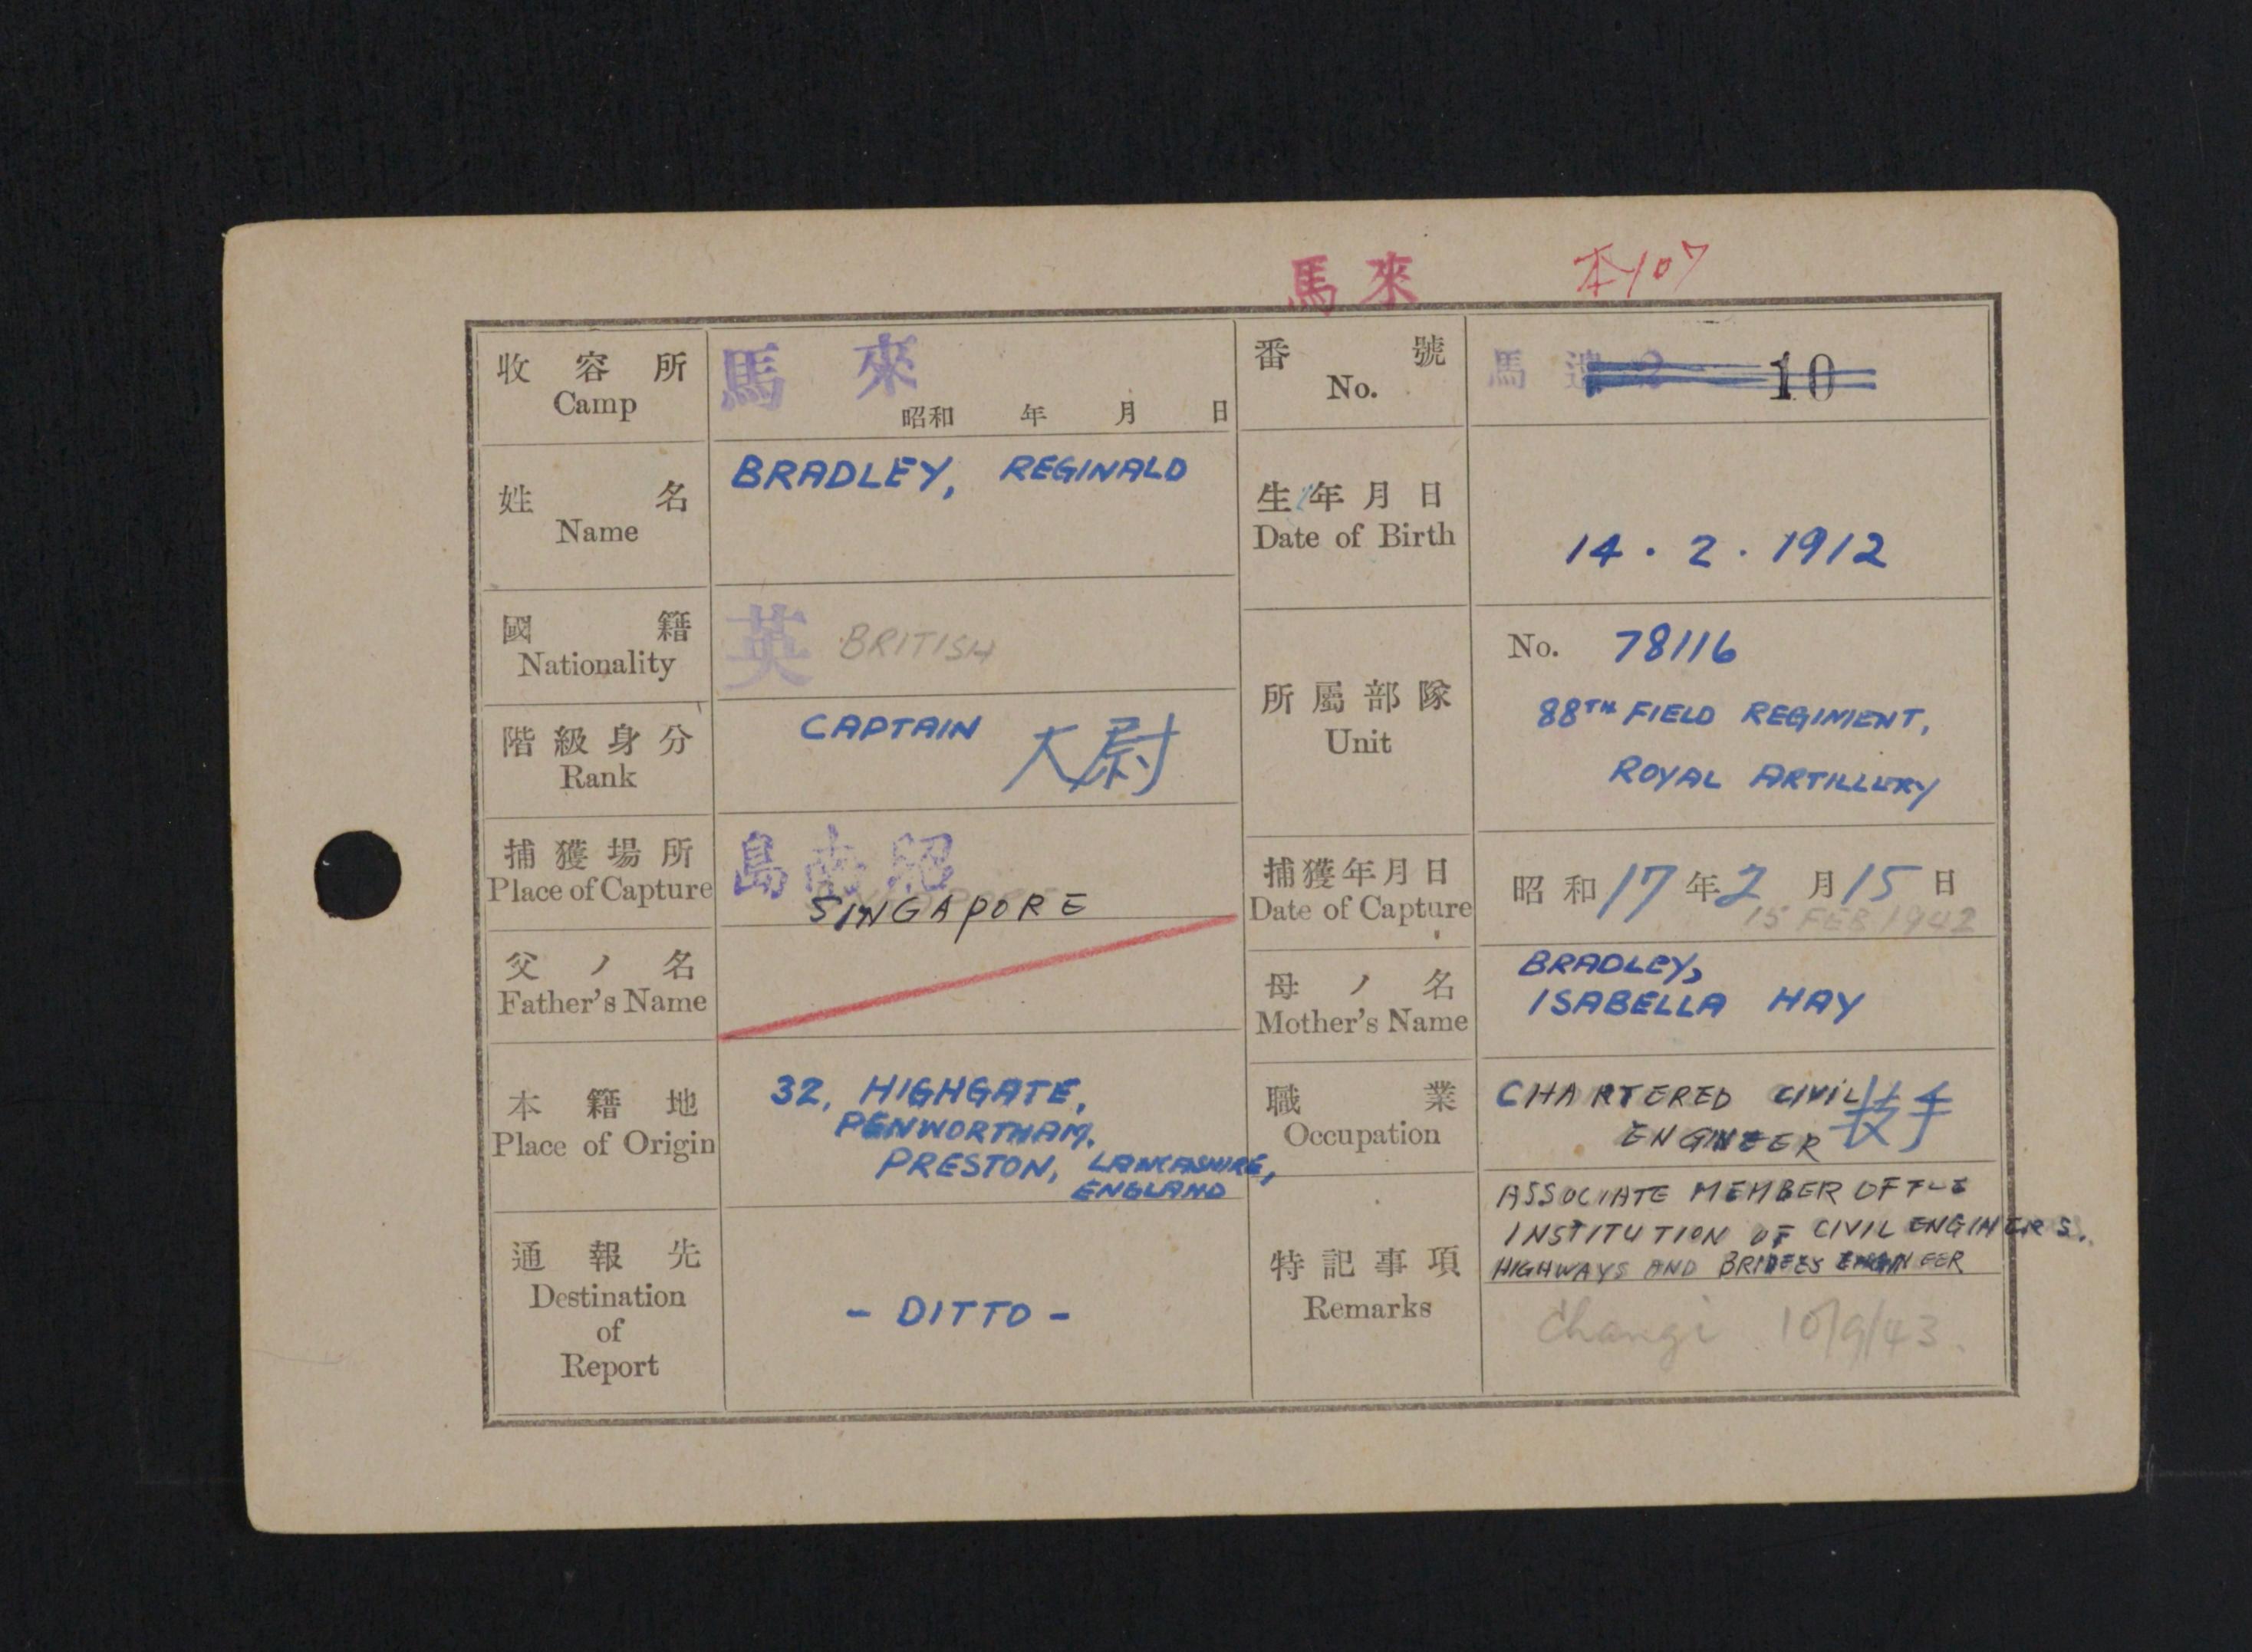 馬來 本107
收容所
Camp
馬來
昭和 年 月 日
番號
No.
馬 10
姓名
Name
BRADLEY, REGINALD
生年月日
Date of Birth
14. 2. 1912
國籍
Nationality
英 BRITISH
階級身分
Rank
CAPTAIN 大尉
所屬部隊
Unit
No. 78116
88TH FIELD REGIMENT,
ROYAL ARTILLERY
捕獲場所
Place of Capture
島南昭
SINGAPORE
捕獲年月日
Date of Capture
昭和17年2月15日
15 FEB 1942
父ノ名
Father's Name
母ノ名
Mother's Name
BRADLEY,
ISABELLA HAY
本籍地
Place of Origin
32, HIGHGATE,
PENWORTHAM,
PRESTON, LANCASHIRE,
ENGLAND
職業
Occupation
CHARTERED CIVIL
ENGINEER 技手
通報先
Destination
of
Report
- DITTO -
特記事項
Remarks
ASSOCIATE MEMBER OF THE
INSTITUTION OF CIVIL ENGINEERS.
HIGHWAYS AND BRIDGES ENGINEER
Changi 10/9/43.